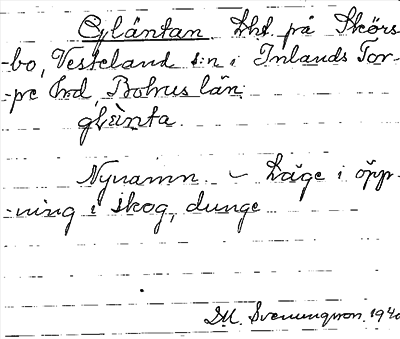 Gläntan Lht. på Skörs-
-bo, Vesteland s:n i Inlands Tor-
-pe hd, Bohus län.
glänta.
Nynamn. – Läge i öpp-
-ning i skog, dunge
D.M. Svenungsson. 1940